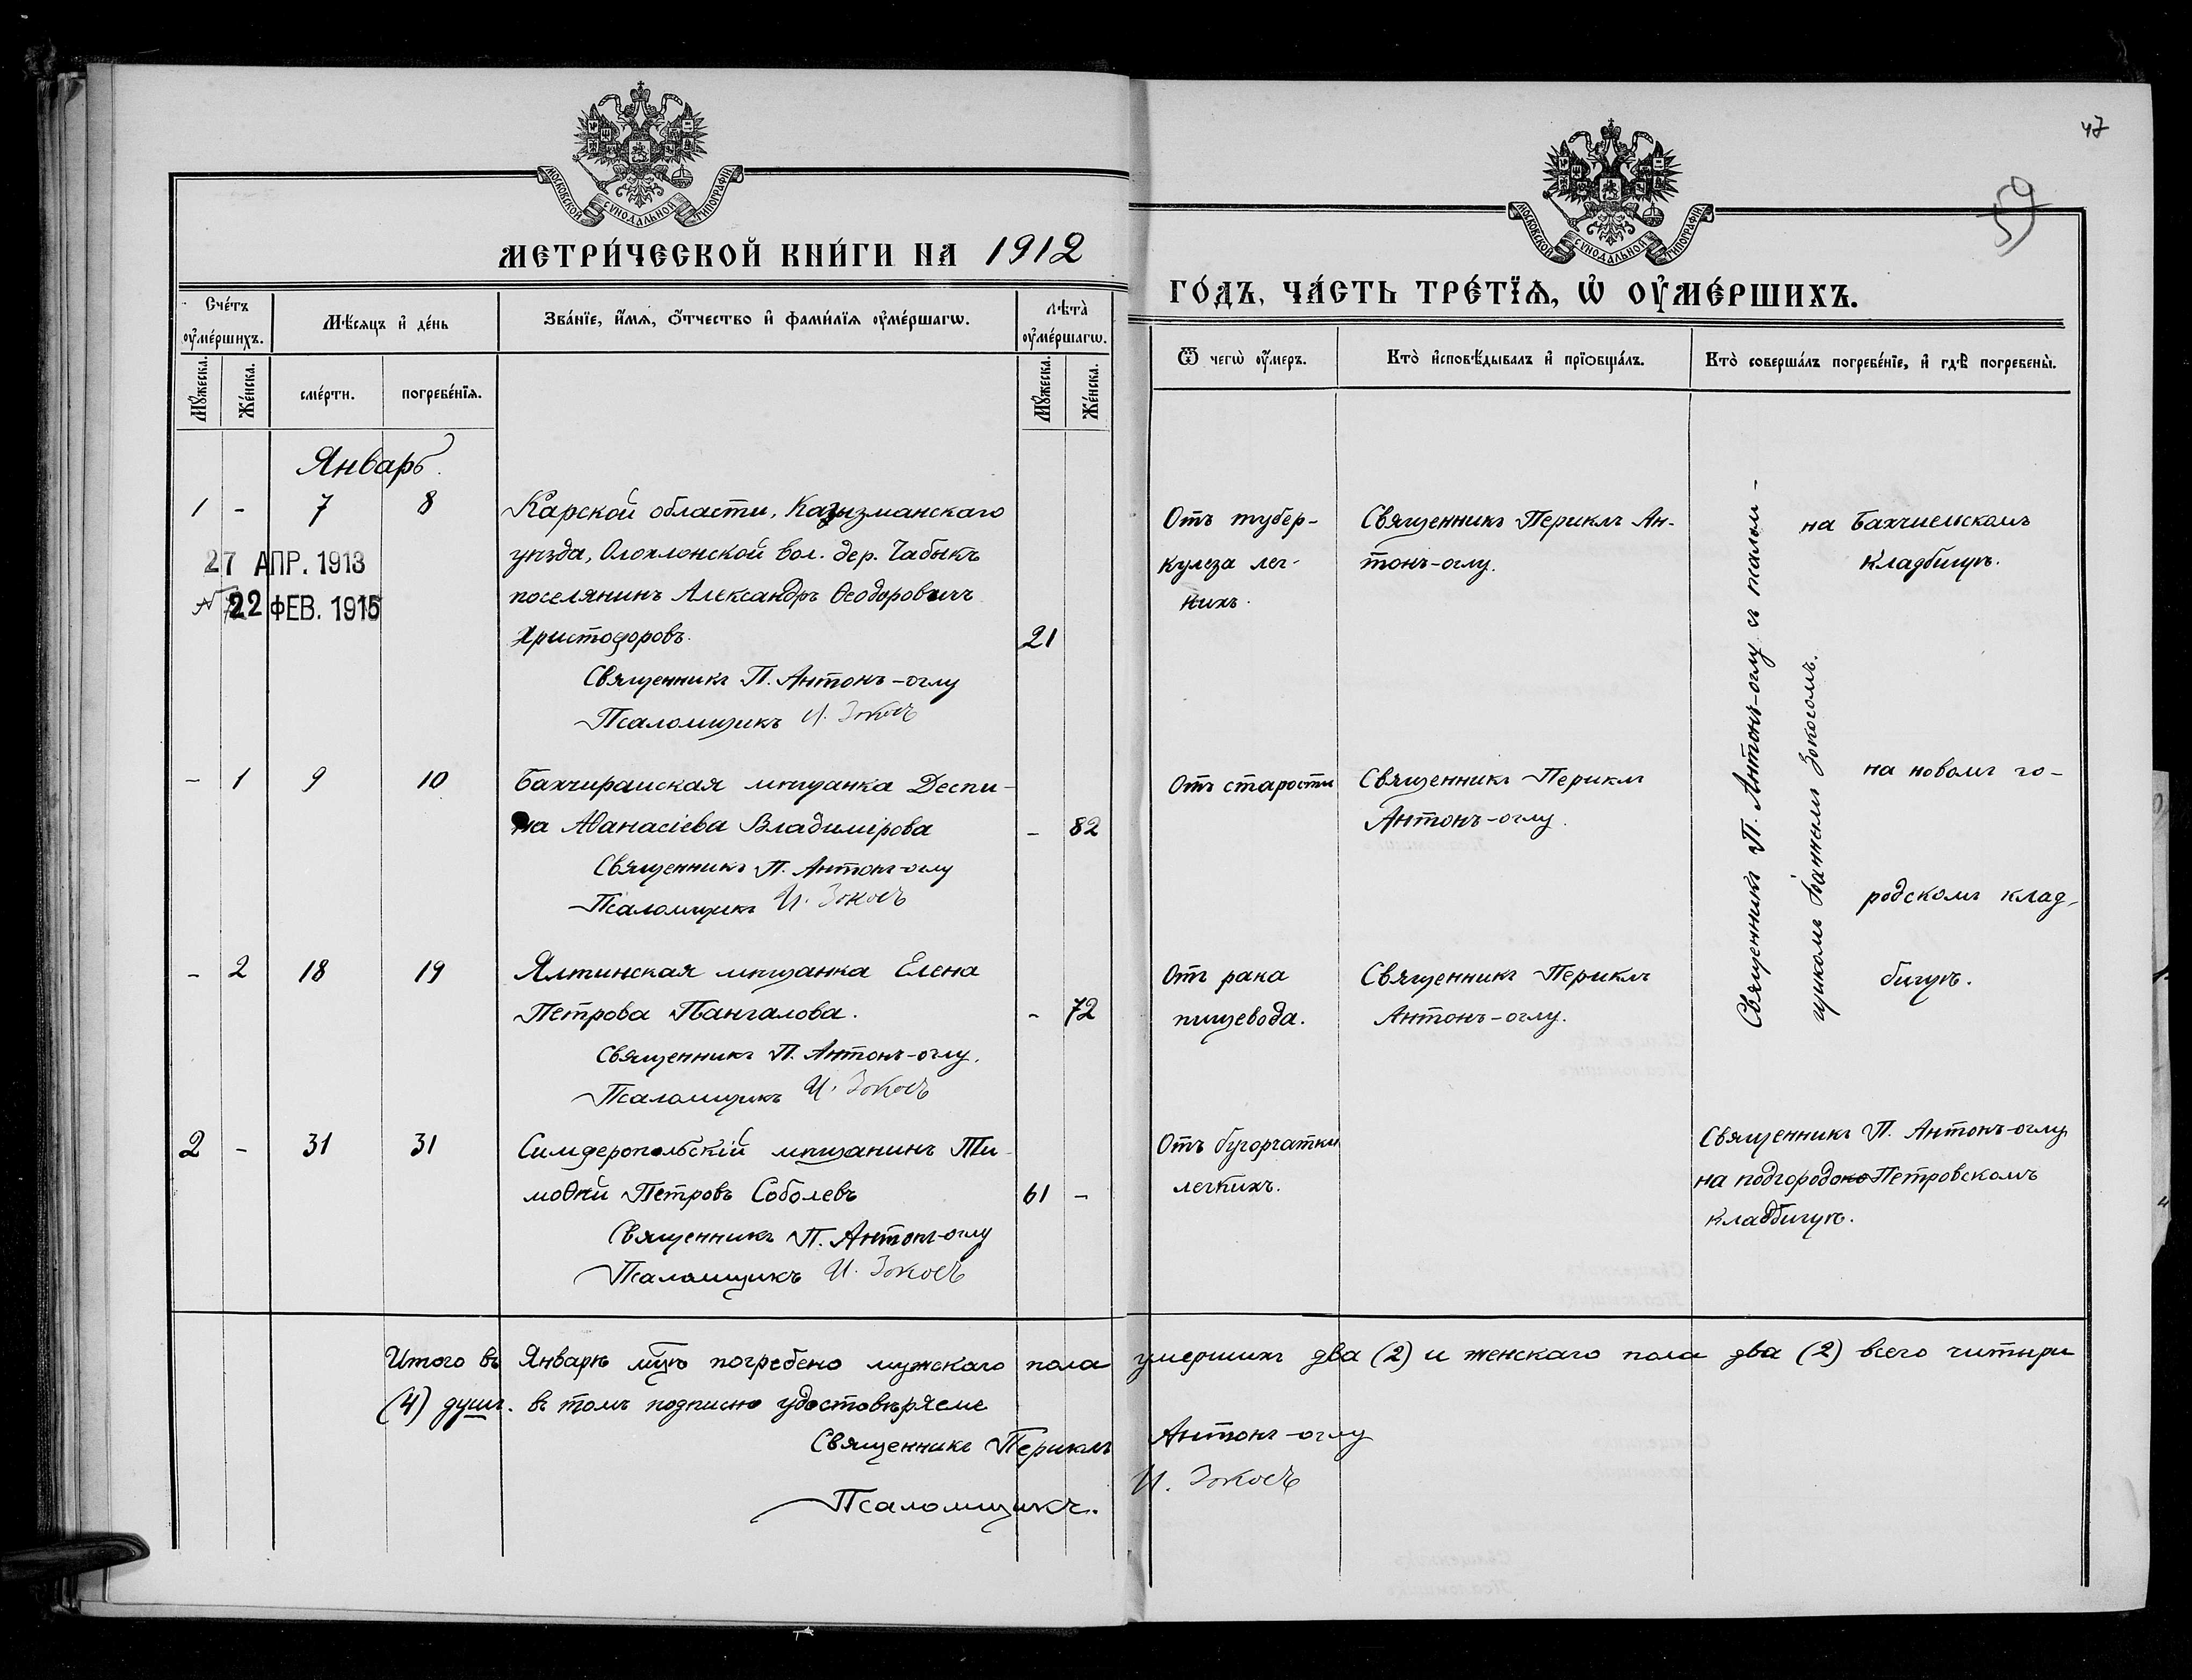 47
59
МОСКОВСКОЙ СѴНОДАЛЬНОЙ ТИПОГРАФІИ
МОСКОВСКОЙ СѴНОДАЛЬНОЙ ТИПОГРАФІИ
МЕТРИ́ЧЕСКОЙ КНИ́ГИ НА 1912
ГО́ДЪ, ЧА́СТЬ ТРЕ́ТЇѦ, Ѡ҆ ОУ҆МЕ́РШИХЪ.
Сче́тъ оу҆ме́ршихъ.
Мѣ́сяцъ и҆ де́нь
Зва́нїе, и҆́мѧ, ѻ҆́тчество и҆ фами́лїѧ оу҆ме́ршагѡ.
Лѣта̀ оу҆ме́ршагѡ.
Ѿ чегѡ̀ оу҆́меръ.
Кто̀ и҆сповѣ́дывалъ и҆ прїѻбща́лъ.
Кто̀ соверша́лъ погребе́нїе, и҆ гдѣ̀ погребены̀.
Мꙋ́жеска.
Же́нска.
сме́рти.
погребе́нїѧ.
Мꙋ́жеска.
Же́нска.
Январь.
1 - 7 8
27 АПР. 1913
22 ФЕВ. 1915
Карской области, Кагызманскаго
уѣзда, Ололконской вол. дер. Чабыкъ
поселянинъ Александръ Ѳеодоровичъ
Христофоровъ. 21
Священникъ П. Антонъ-оглу
Псаломщикъ И. Зокосъ
Отъ тубер-
кулеза лег-
кихъ.
Священникъ Периклъ Ан-
тонъ-оглу.
Священникъ П. Антонъ-оглу съ псалом-
щикомъ Іоанномъ Зокосомъ.
на Бахчиельскомъ
кладбищѣ.
- 1 9 10
Бахчирайская мѣщанка Деспи-
на Аѳанасіева Владимірова - 82
Священникъ П. Антонъ-оглу
Псаломщикъ И. Зокосъ
Отъ старости
Священникъ Периклъ
Антонъ-оглу.
на новомъ го-
родскомъ клад-
бищѣ.
- 2 18 19
Ялтинская мѣщанка Елена
Петрова Пангалова. - 72
Священникъ П. Антонъ-оглу.
Псаломщикъ И. Зокосъ
Отъ рака
пищевода.
Священникъ Периклъ
Антонъ-оглу.
2 - 31 31
Симферопольскій мѣщанинъ Ти-
моѳей Петровъ Соболевъ 61 -
Священникъ П. Антонъ-оглу
Псаломщикъ И. Зокосъ
Отъ бугорчатки
легкихъ.
Священникъ П. Антонъ-оглу
на подгородско Петровскомъ
кладбищѣ.
Итого въ Январѣ мцѣ погребено мужскаго пола умершихъ два (2) и женскаго пола два (2) всего читыри
(4) душъ. въ томъ подписью удостовѣряемъ
Священникъ Периклъ Антонъ-оглу
Псаломщикъ. И. Зокосъ